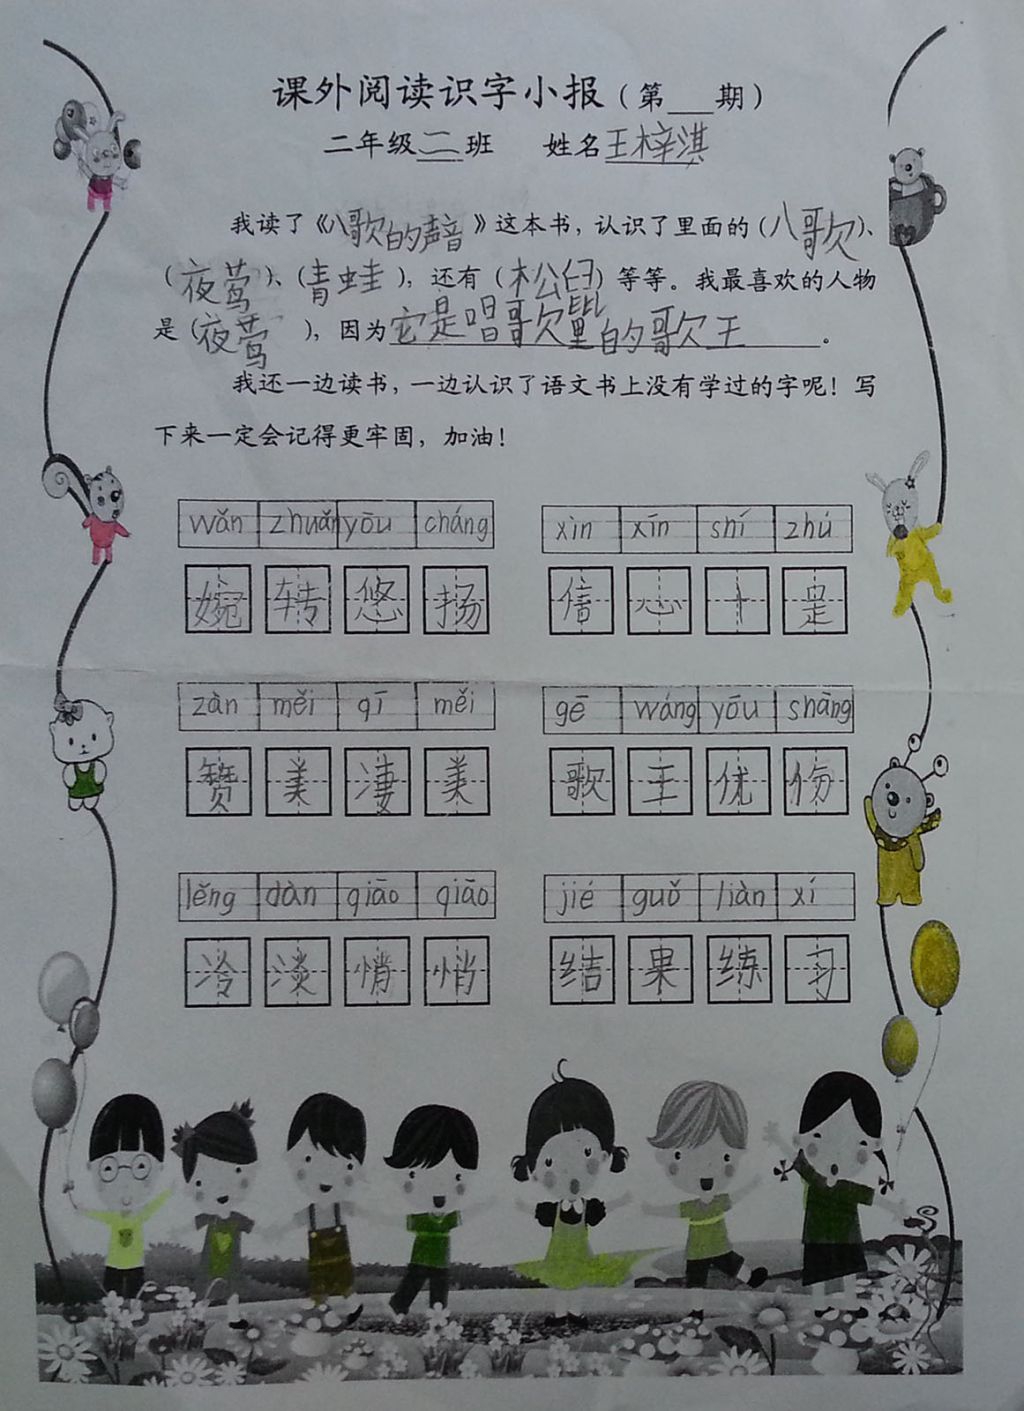 课外阅读识字小报（第___期）
二年级二班 姓名王梓淇
我读了《八歌的声音》这本书，认识了里面的（八歌）、
（夜莺）、（青蛙），还有（松臼）等等。我最喜欢的人物
是（夜莺），因为它是唱歌鼠的歌王。
我还一边读书，一边认识了语文书上没有学过的字呢！写
下来一定会记得更牢固，加油！
wǎn zhuǎn yōu cháng xìn xīn shí zhú
婉 转 悠 扬 信 心 十 足
zàn měi qī měi gē wáng yōu shāng
赞 美 凄 美 歌 王 优 伤
lěng dàn qiāo qiāo jié guǒ liàn xí
冷 淡 悄 悄 结 果 练 习